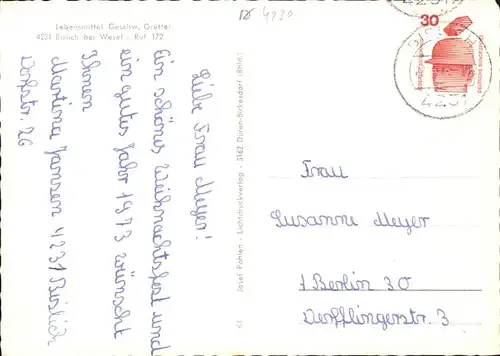 Lebensmittel Geschw. Grütter
4231 Bislich bei Wesel - Ruf 172
Liebe Frau Meyer!
Ein schönes Weihnachtsfest und
ein gutes Jahr 1973 wünscht
Ihnen
Martina Janssen 4231 Bislich
Dorfstr. 26
Josef Pohlen - Lichtdruckverlag - 5162 Düren-Birkesdorf (Rhld.)
4230
30
4231
Frau
Susanne Meyer
1 Berlin 30
Derfflingerstr. 3